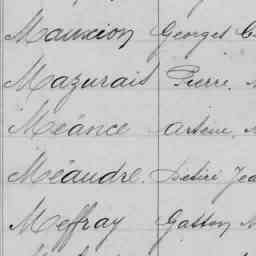 Mauxion Georges
Mazurais Pierre
Méance Arsène
Méaudre Désiré
Meffray Gaston